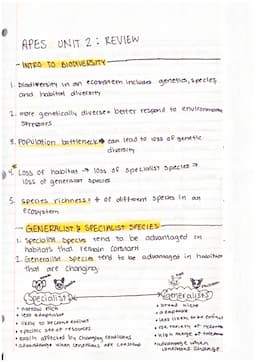 APES UNIT 2: REVIEW
- INTRO TO BIODIVERSITY
1. biodiversity in an ecosystem includes genetics, species, and habitat diversity
2. more genetically diverse = better respond to environmental stressors
3. Population bottleneck → can lead to loss of genetic diversity
4. Loss of habitat → loss of specialist species →
loss of generalist species
5. species richness = # of different species in an
ecosystem
- GENERALIST & SPECIALIST SPECIES
1. Specialist species tend to be advantaged in
habitats that remain constant
2. Generalist species tend to be advantaged in habitats
that are changing
Specialist
Generalists
• narrow niche
• broad niche
• less adaptable
• adaptable
• likely to become extinct
• less likely to be extinct
• specific set of resources
• high range of tolerance
• easily affected by changing conditions
• advantage when conditions are constant
• advantage when
conditions change